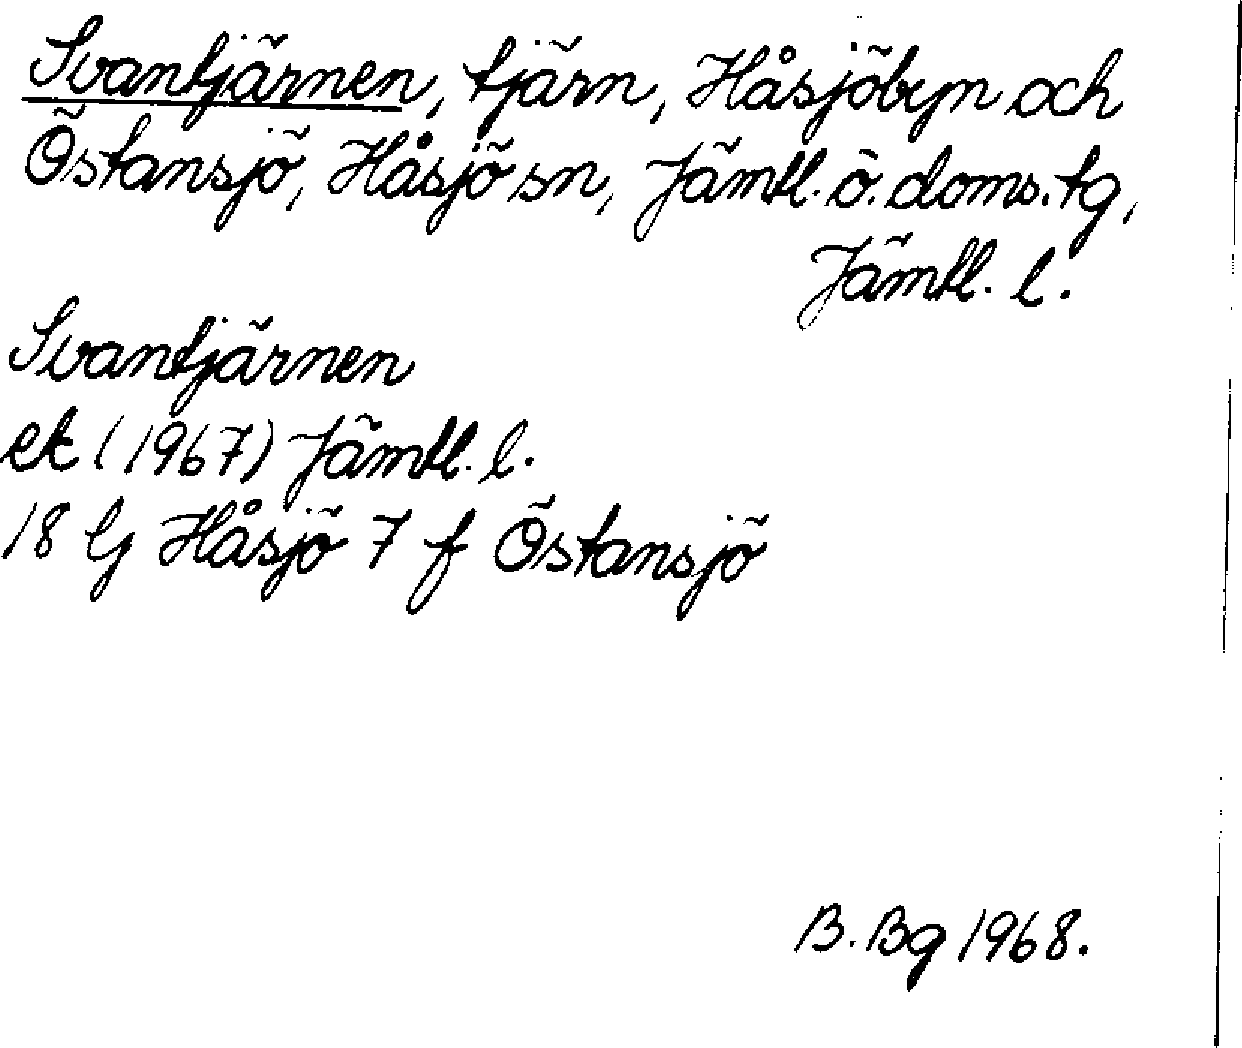 Svantjärnen, tjärn, Håsjöbyn och
Östansjö, Håsjö sn, Jämtl. ö. doms. tg,
Jämtl. l.
Svantjärnen
ek (1967) Jämtl. l.
18 G Håsjö 7 f Östansjö
B. Bg 1968.